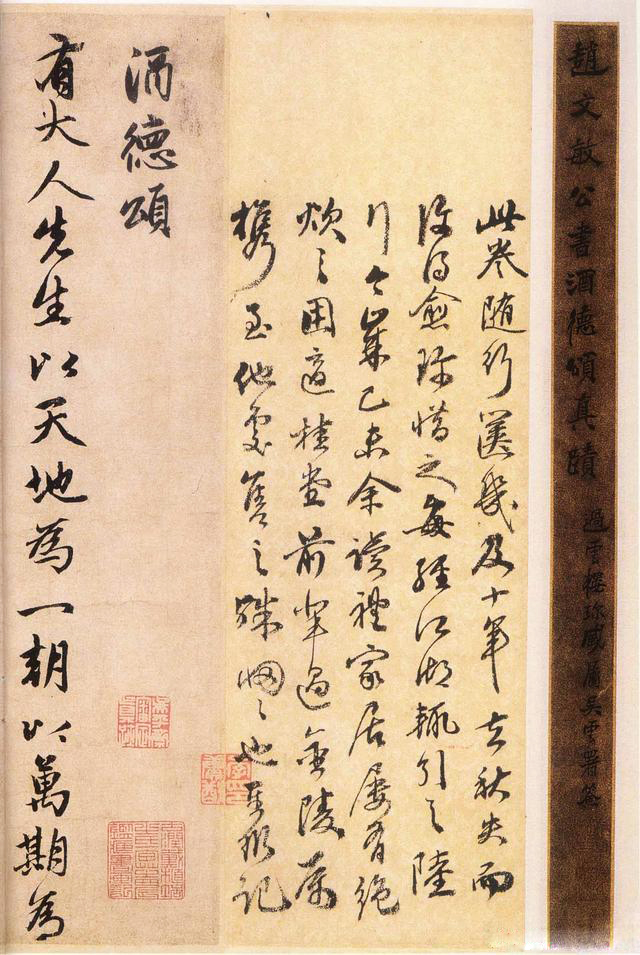 趙文敏公書酒德頌真蹟
過雲樓珍藏屬吳雲署簽
此卷随行篋幾及十年去秋失而
復得愈珍惜之每經江湖輒引之陸
行今歲己未余讀禮家居屢有絕
炊之困適桂堂前辈過金陵属
携至他處售之殊惘〻也記
酒德頌
有大人先生以天地為一朝以萬期為